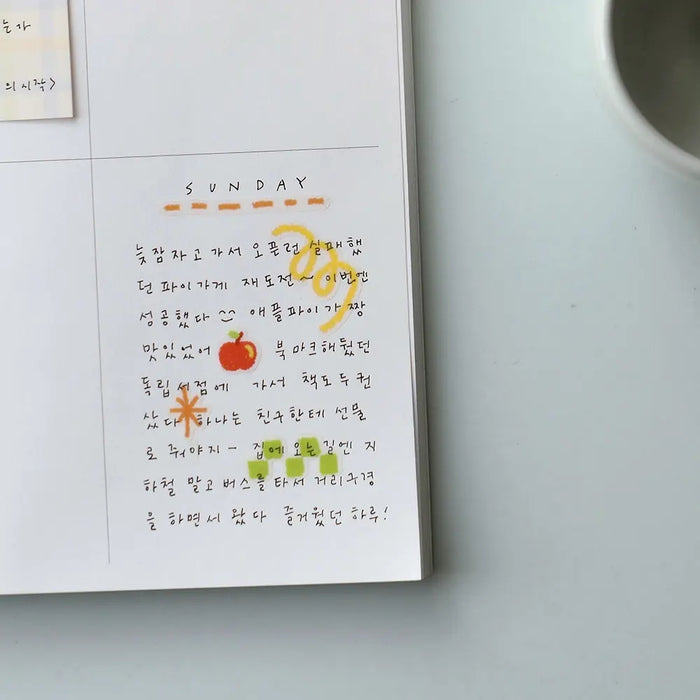 는가
의 시작>
SUNDAY
늦잠 자고 가서 오픈런 실패했
던 파이가게 재도전~ 이번엔
성공했다 애플파이가 짱
맛있었어 북마크해뒀던
독립서점에 가서 책도 두 권
샀다 하나는 친구한테 선물
로 줘야지 - 집에 오는 길엔 지
하철 말고 버스를 타서 거리구경
을 하면서 왔다 즐거웠던 하루!